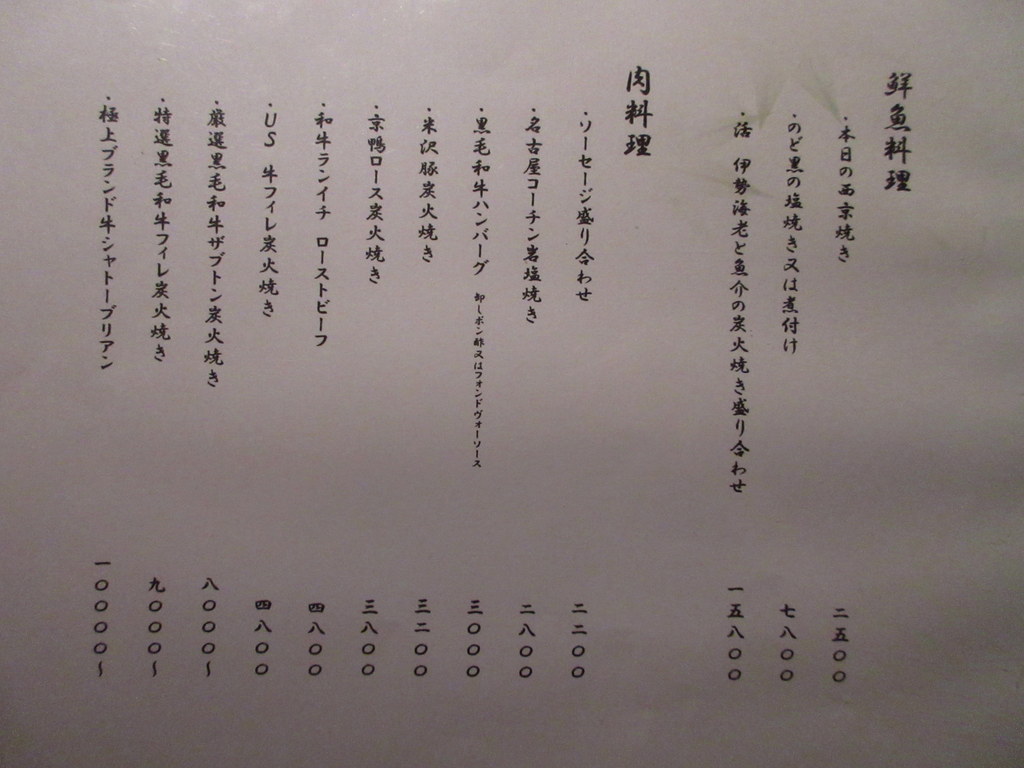 鮮魚料理
・本日の西京焼き 二五〇〇
・のど黒の塩焼き又は煮付け 七八〇〇
・活 伊勢海老と魚介の炭火焼き盛り合わせ 一五八〇〇
肉料理
・ソーセージ盛り合わせ 二二〇〇
・名古屋コーチン岩塩焼き 二八〇〇
・黒毛和牛ハンバーグ 卸しポン酢又はフォンドヴォーソース 三〇〇〇
・米沢豚炭火焼き 三二〇〇
・京鴨ロース炭火焼き 三八〇〇
・和牛ランイチ ローストビーフ 四八〇〇
・US 牛フィレ炭火焼き 四八〇〇
・厳選黒毛和牛ザブトン炭火焼き 八〇〇〇〜
・特選黒毛和牛フィレ炭火焼き 九〇〇〇〜
・極上ブランド牛シャトーブリアン 一〇〇〇〇〜